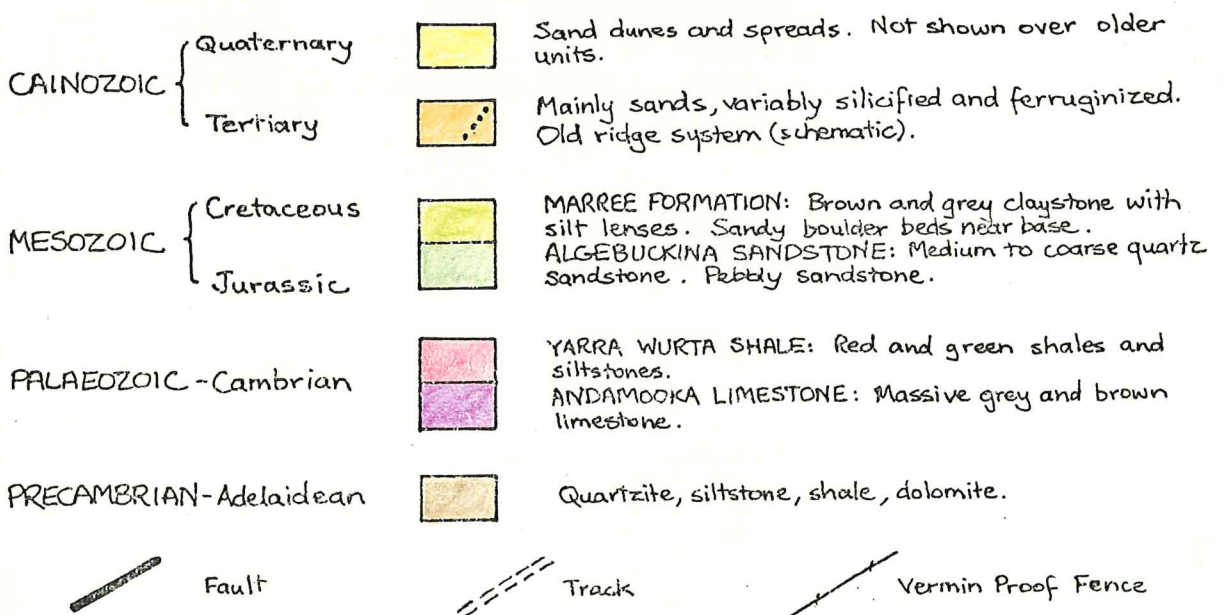 CAINOZOIC
Quaternary
Sand dunes and spreads. Not shown over older
units.
Tertiary
Mainly sands, variably silicified and ferruginized.
Old ridge system (schematic).
MESOZOIC
Cretaceous
MARREE FORMATION: Brown and grey claystone with
silt lenses. Sandy boulder beds near base.
Jurassic
ALGEBUCKINA SANDSTONE: Medium to coarse quartz
sandstone. Pebbly sandstone.
PALAEOZOIC-Cambrian
YARRA WURTA SHALE: Red and green shales and
siltstones.
ANDAMOOKA LIMESTONE: Massive grey and brown
limestone.
PRECAMBRIAN-Adelaidean
Quartzite, siltstone, shale, dolomite.
Fault
Track
Vermin Proof Fence